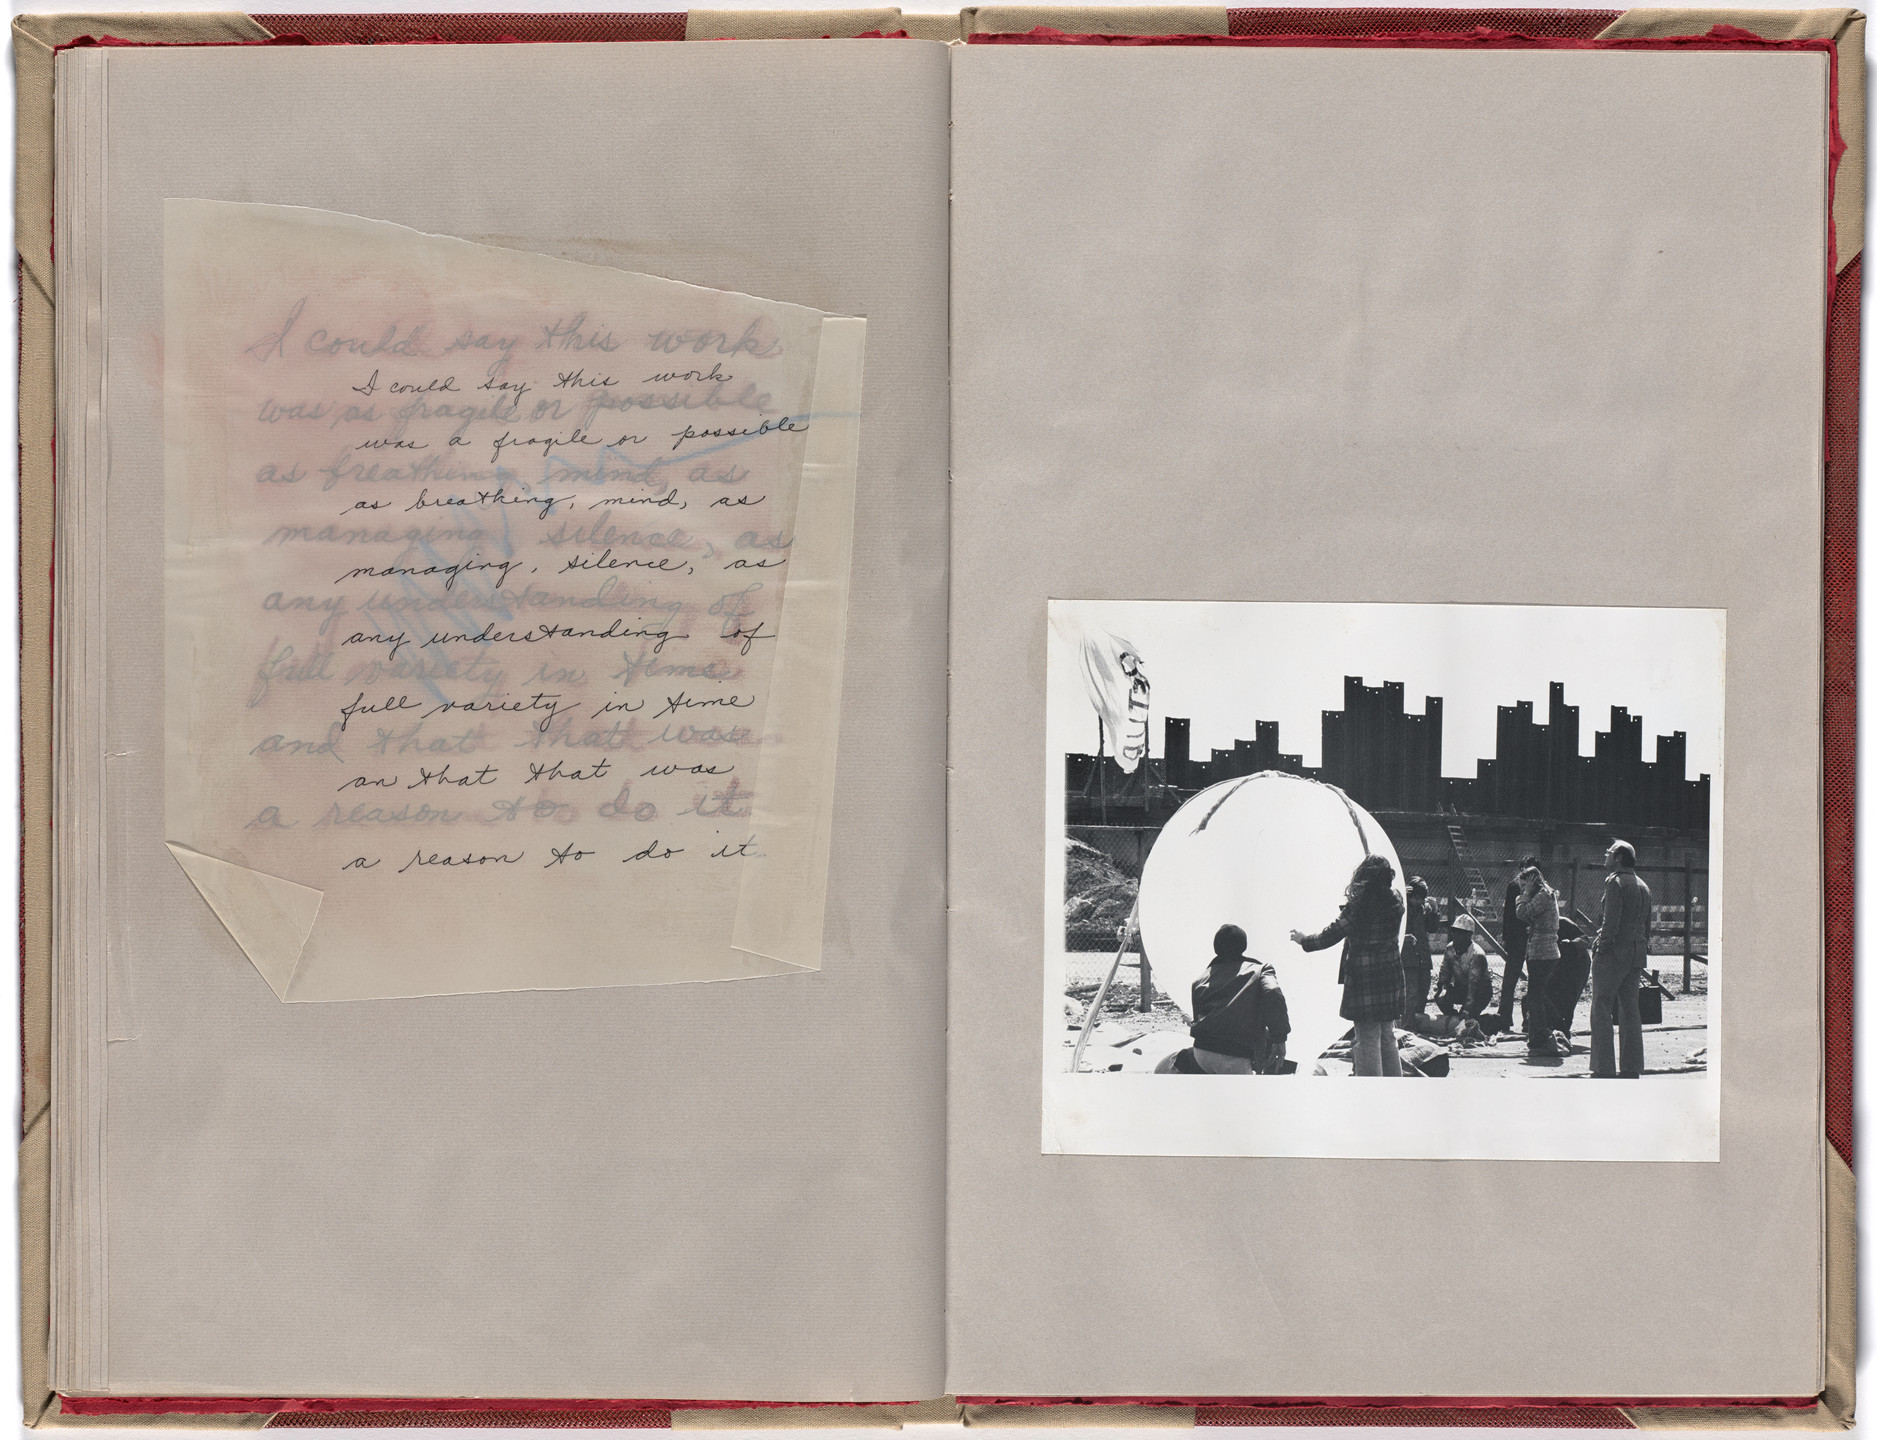 I could say this work
I could say this work
was as fragile or possible
was a fragile or possible
as breathing, mind, as
as breathing, mind, as
managing, silence, as
managing, silence, as
any understanding of
any understanding of
full variety in time
full variety in time
and that that was
an that that was
a reason to do it
a reason to do it